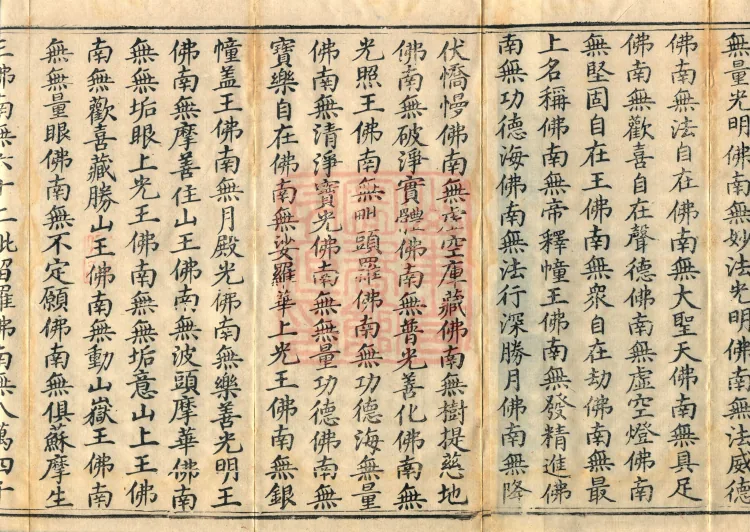 無量光明佛南無妙法光明佛南無法威德
佛南無法自在佛南無大聖天佛南無具足
佛南無歡喜自在聲德佛南無虛空燈佛南
無堅固自在王佛南無衆自在劫佛南無最
上名稱佛南無帝釋幢王佛南無發精進佛
南無功德海佛南無法行深勝月佛南無降
伏憍慢佛南無虛空庫藏佛南無樹提慈地
佛南無破淨實體佛南無普光善化佛南無
光照王佛南無頭羅佛南無功德海無量
佛南無清淨寶光佛南無無量功德佛南無
寶樂自在佛南無娑羅華上光王佛南無銀
幢盖王佛南無月殿光佛南無樂善光明王
佛南無摩善住山王佛南無波頭摩華佛南
無無垢眼上光王佛南無無垢意山上王佛
南無歡喜藏勝山王佛南無動山嶽王佛南
無無量眼佛南無不定願佛南無俱蘇摩生
佛南無六十二毗留羅佛南無八萬四千